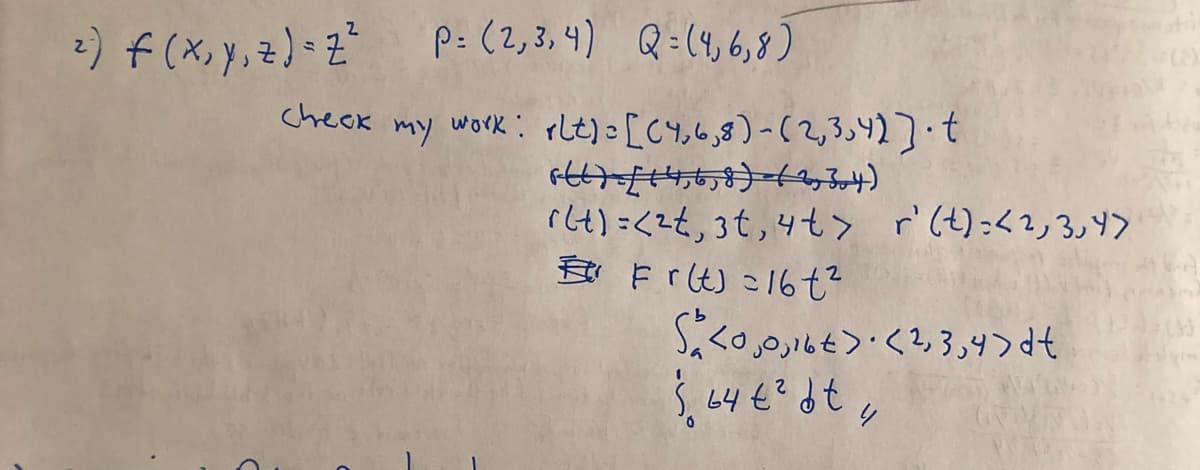 2) f(x,y,z)=z² P=(2,3,4) Q=(4,6,8)
check my work: r(t)=[(4,6,8)-(2,3,4)]·t
r(t)=[(4,6,8)-(2,3,4)
r(t)=<2t,3t,4t> r'(t)=<2,3,4>
F r(t)=16t²
∫ₐᵇ<0,0,16t>·<2,3,4>dt
∫₀¹ 64t² dt //